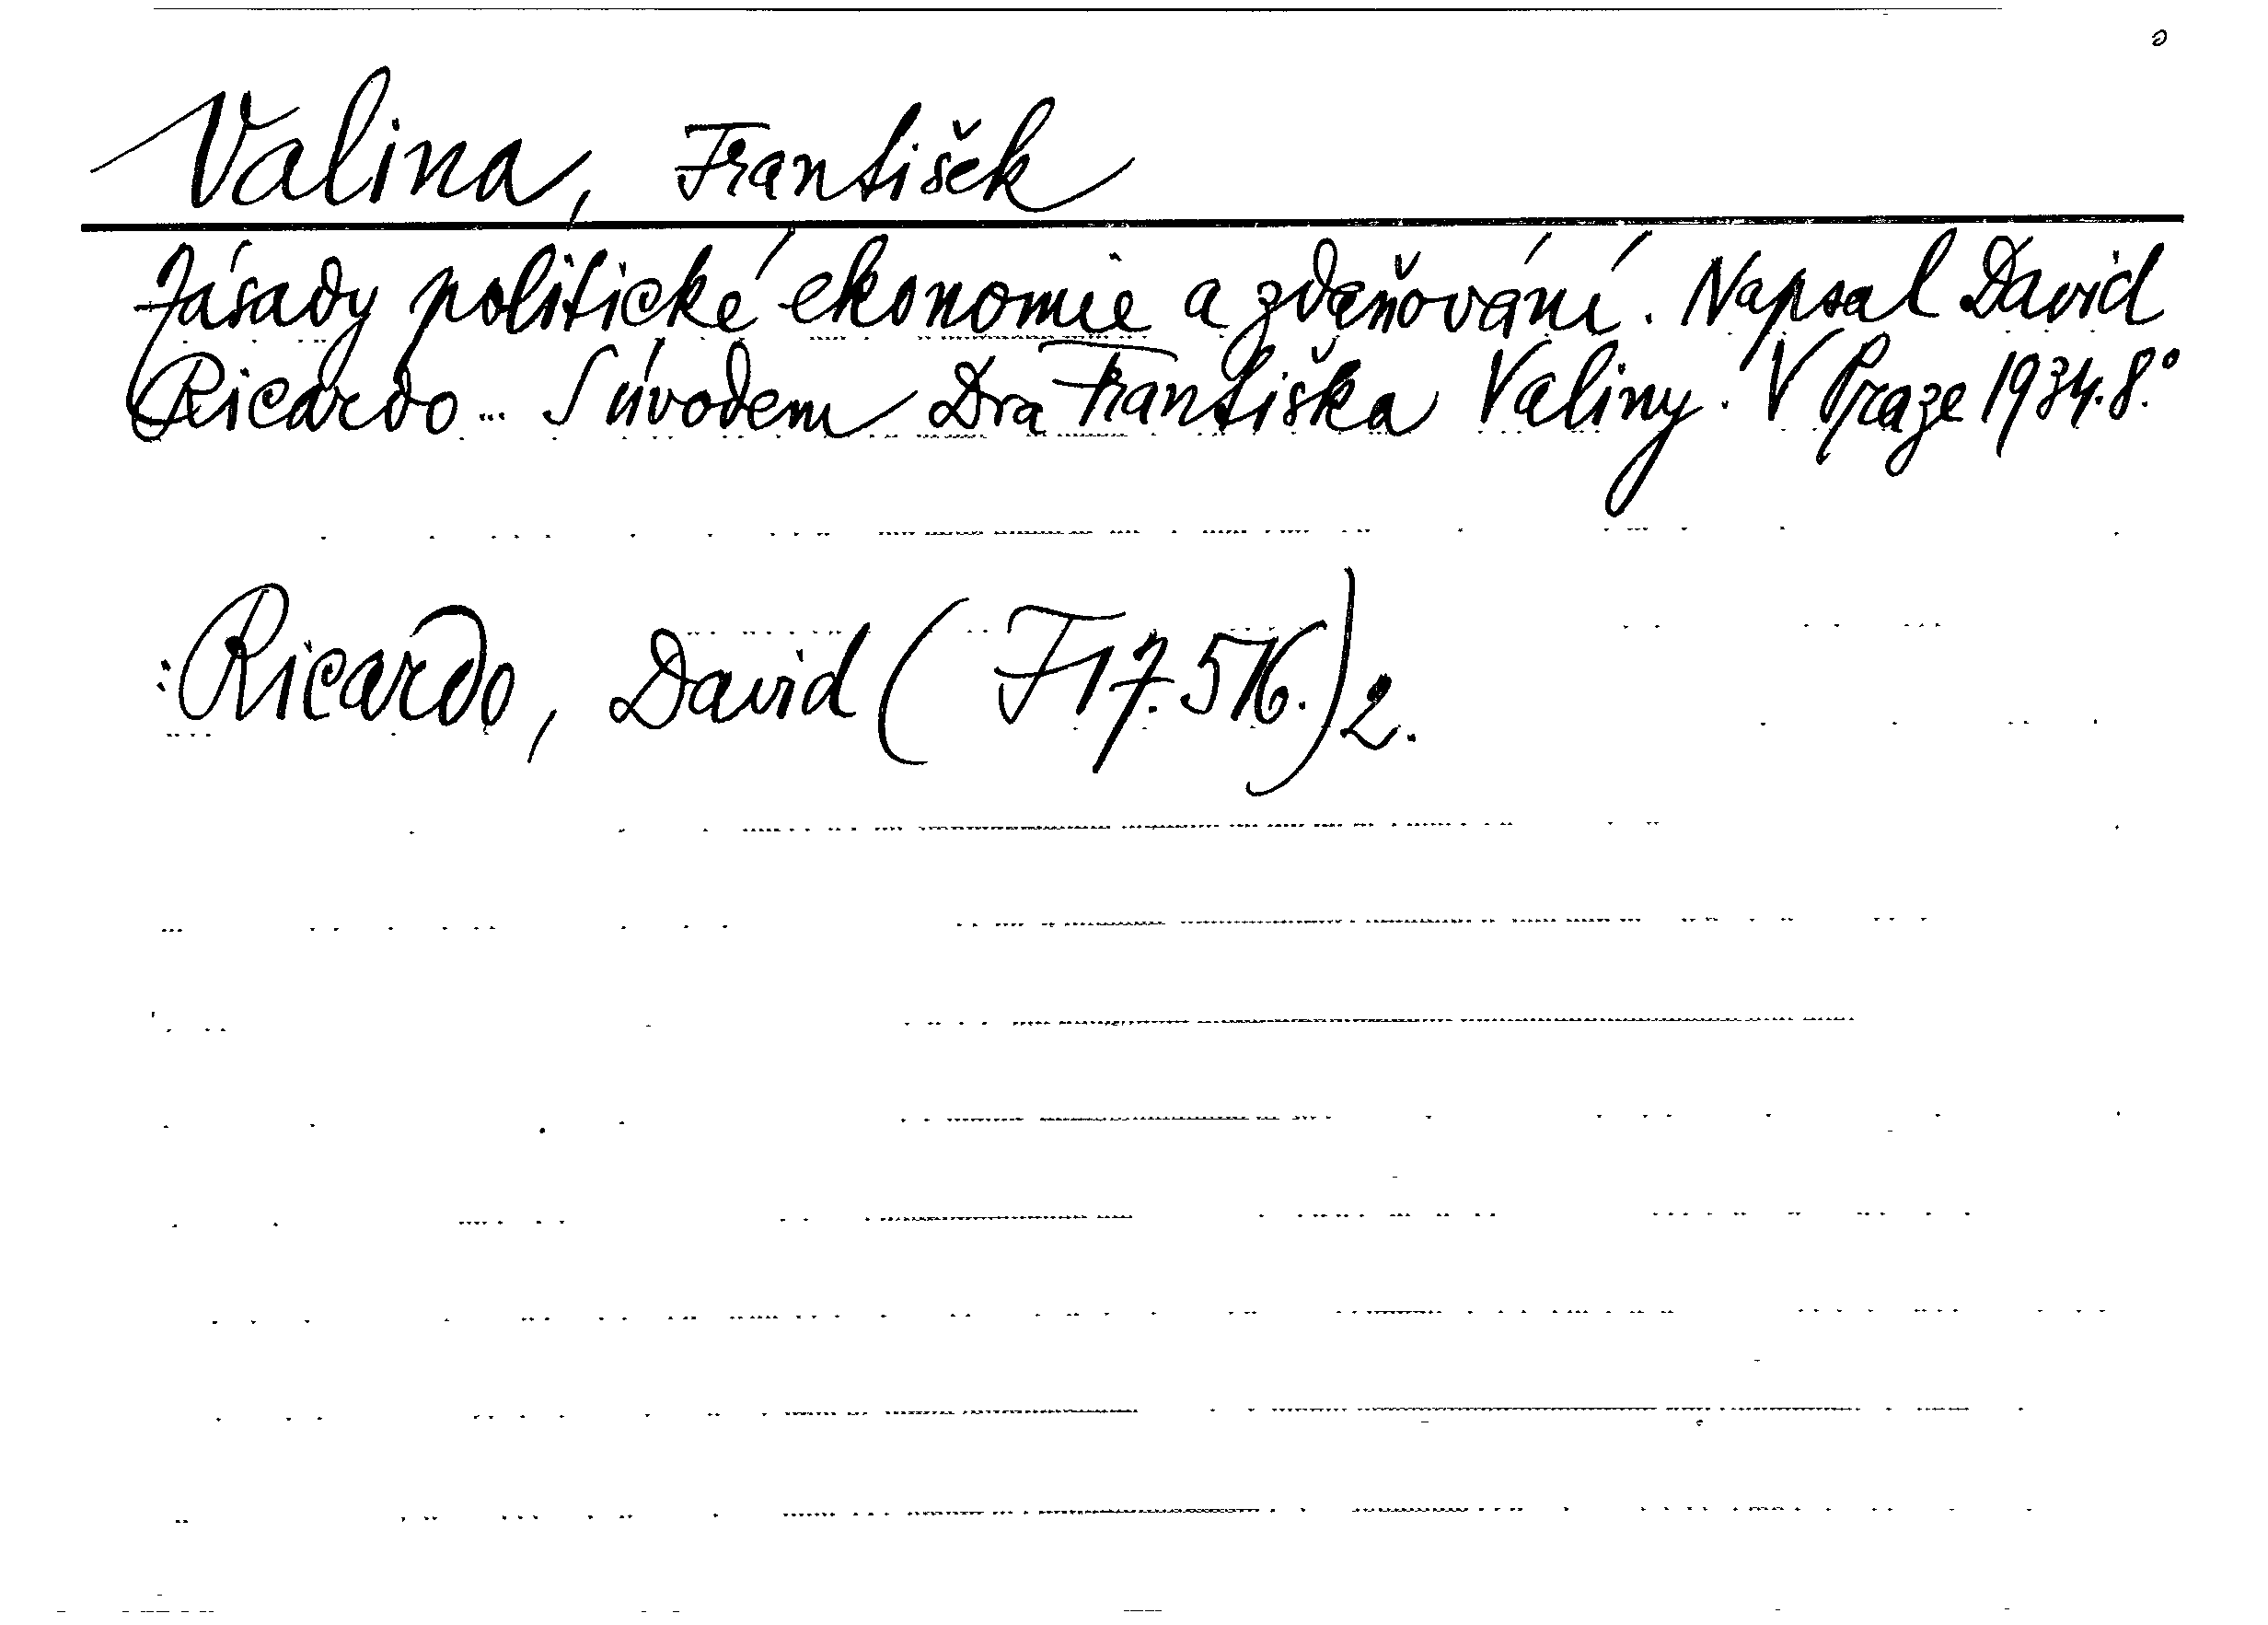 Valina, František
Zásady politické ekonomie a zdaňování. Napsal David
Ricardo... S úvodem Dra Františka Valiny. V Praze 1934. 8.°
:Ricardo, David (F 17.516.) 2.